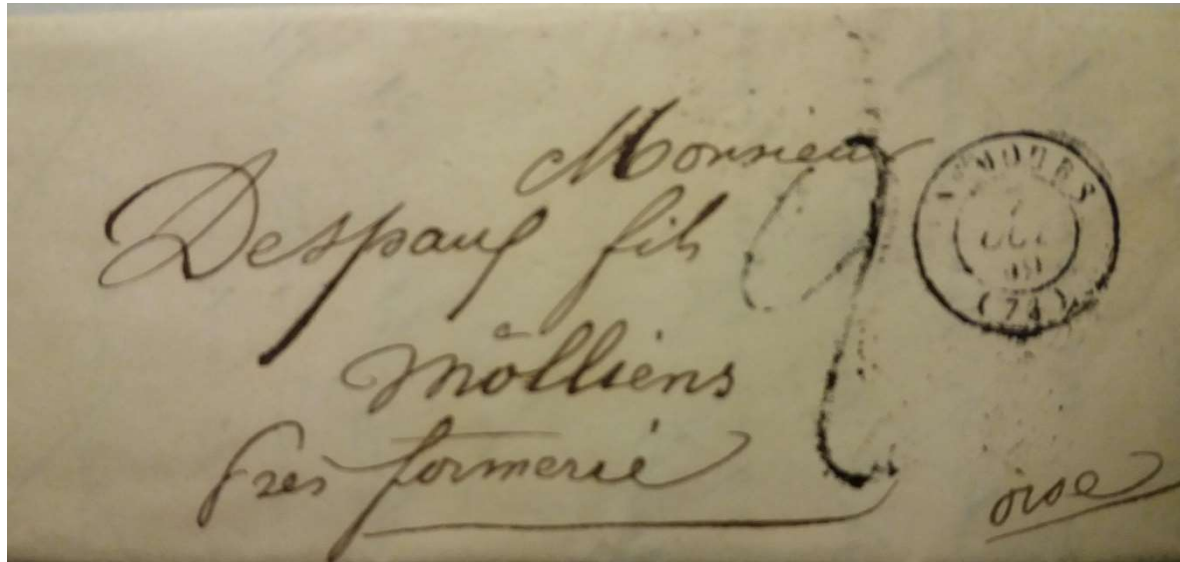 Monsieur
Despaux fils
à
Molliens
près formerie
oise
2
OCT